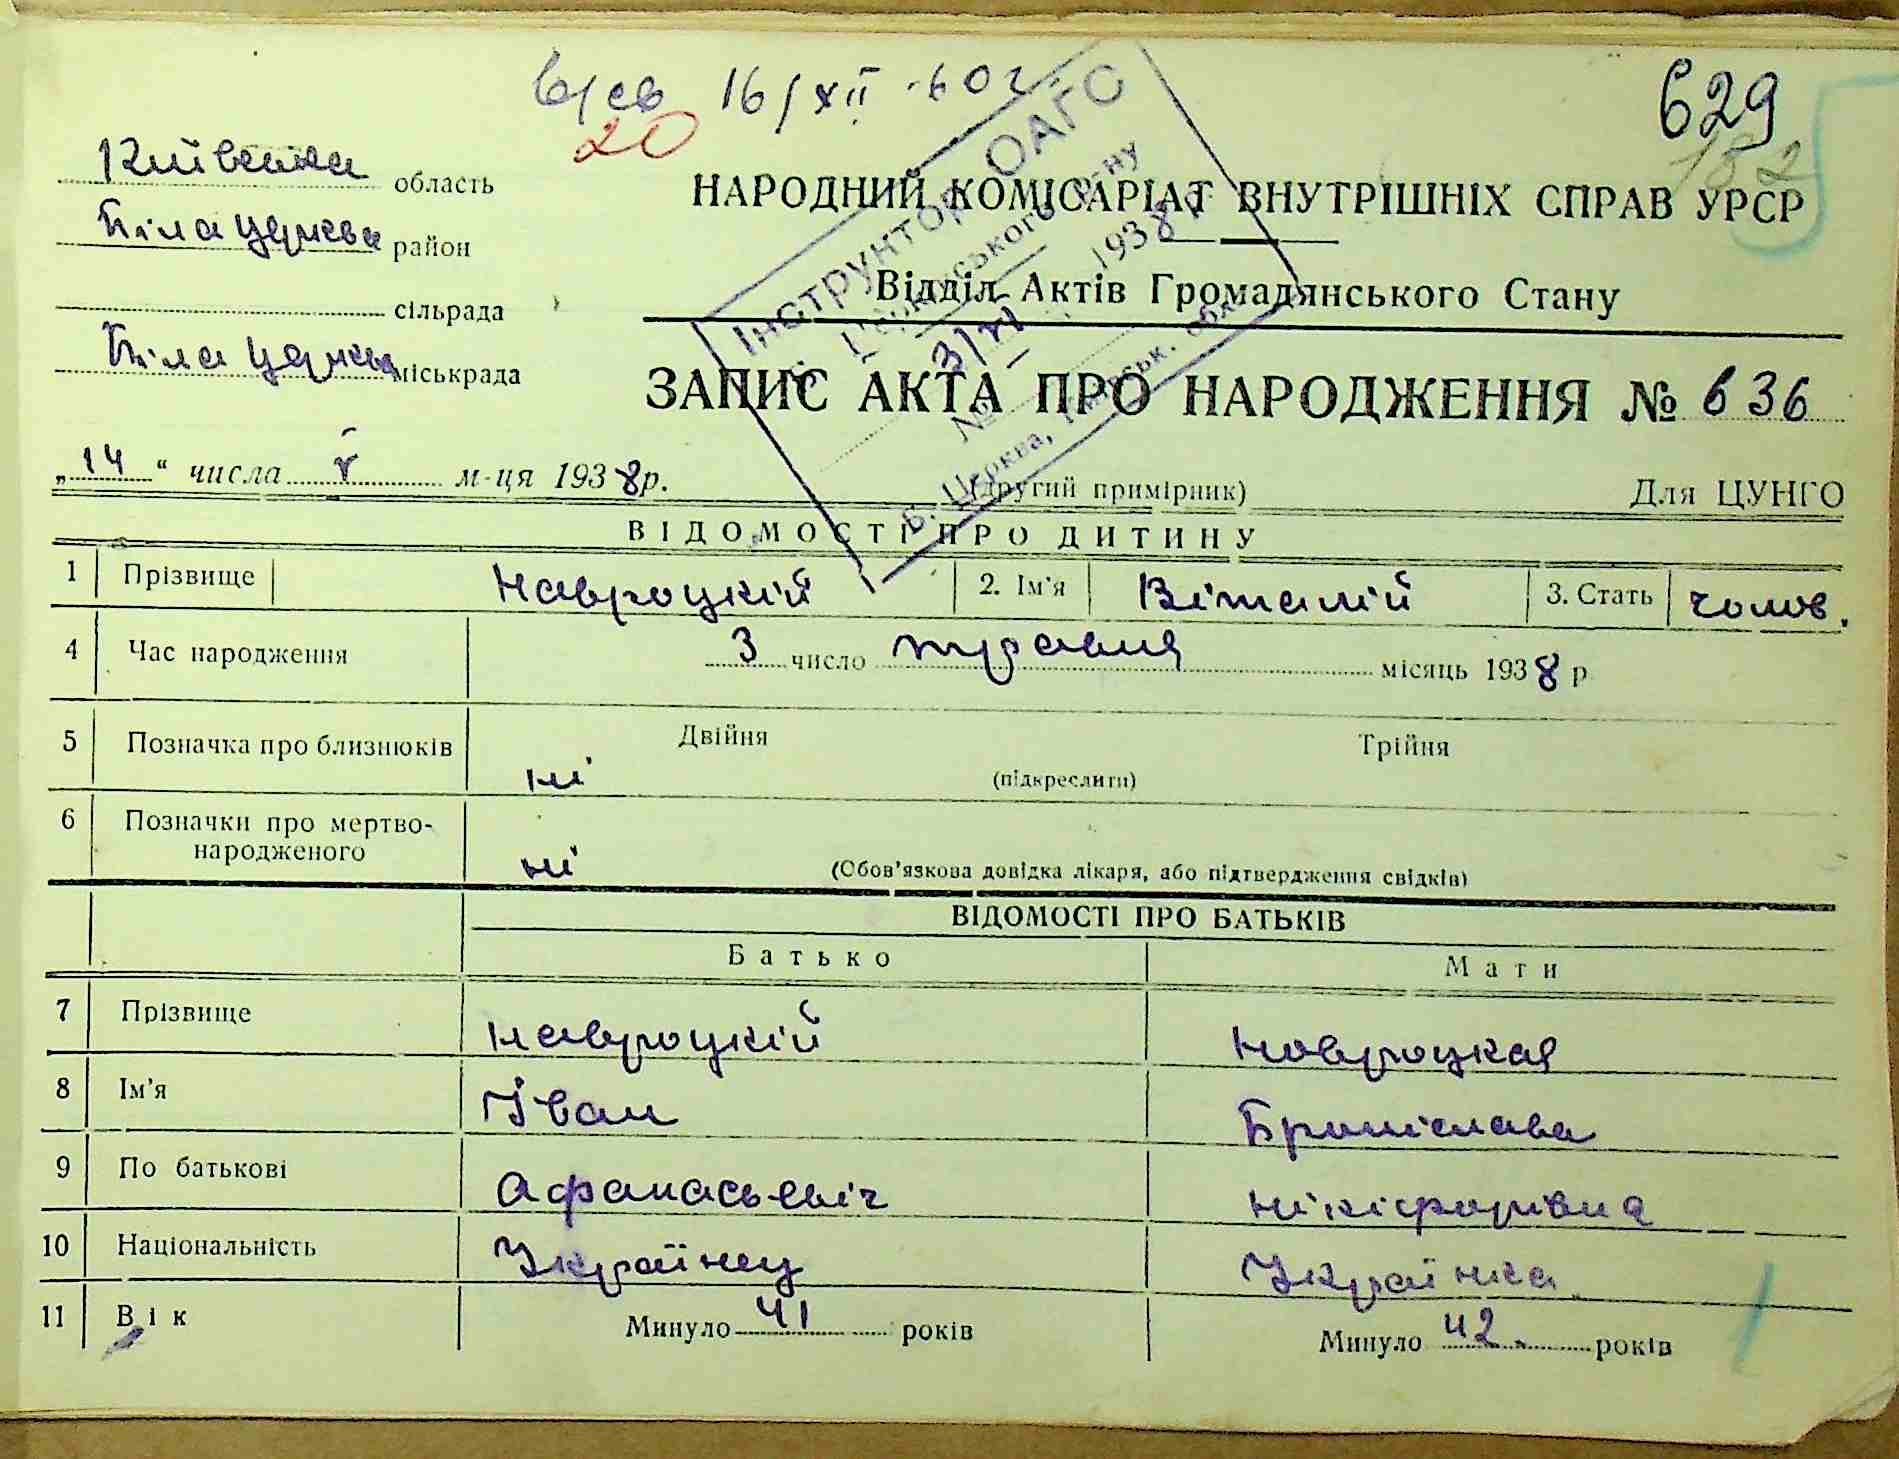 в/св 16/XII-60 г.
20
629
182
Київська область
Біла Церква район
сільрада
Біла Церква міськрада
НАРОДНИЙ КОМІСАРІАТ ВНУТРІШНІХ СПРАВ УРСР
Відділ Актів Громадянського Стану
ЗАПИС АКТА ПРО НАРОДЖЕННЯ № 636
„14“ числа V м-ця 1938р.
(другий примірник)
Для ЦУНГО
Інструктор ОАГС
3/VI 1938
№
Б. Церква, обл.
ВІДОМОСТІ ПРО ДИТИНУ
1 Прізвище Навроцкій 2. Ім'я Віталій 3. Стать чолов.
4 Час народження 3 число травня місяць 1938 р
5 Позначка про близнюків ні Двійня Трійня
(підкреслити)
6 Позначки про мертво-
народженого ні (Обов'язкова довідка лікаря, або підтвердження свідків)
ВІДОМОСТІ ПРО БАТЬКІВ
Батько Мати
7 Прізвище Навроцкій Новроцкая
8 Ім'я Іван Броніслава
9 По батькові Афанасьевіч Нікіфорівна
10 Національність Українец Українка
11 Вік Минуло 41 років Минуло 42. років